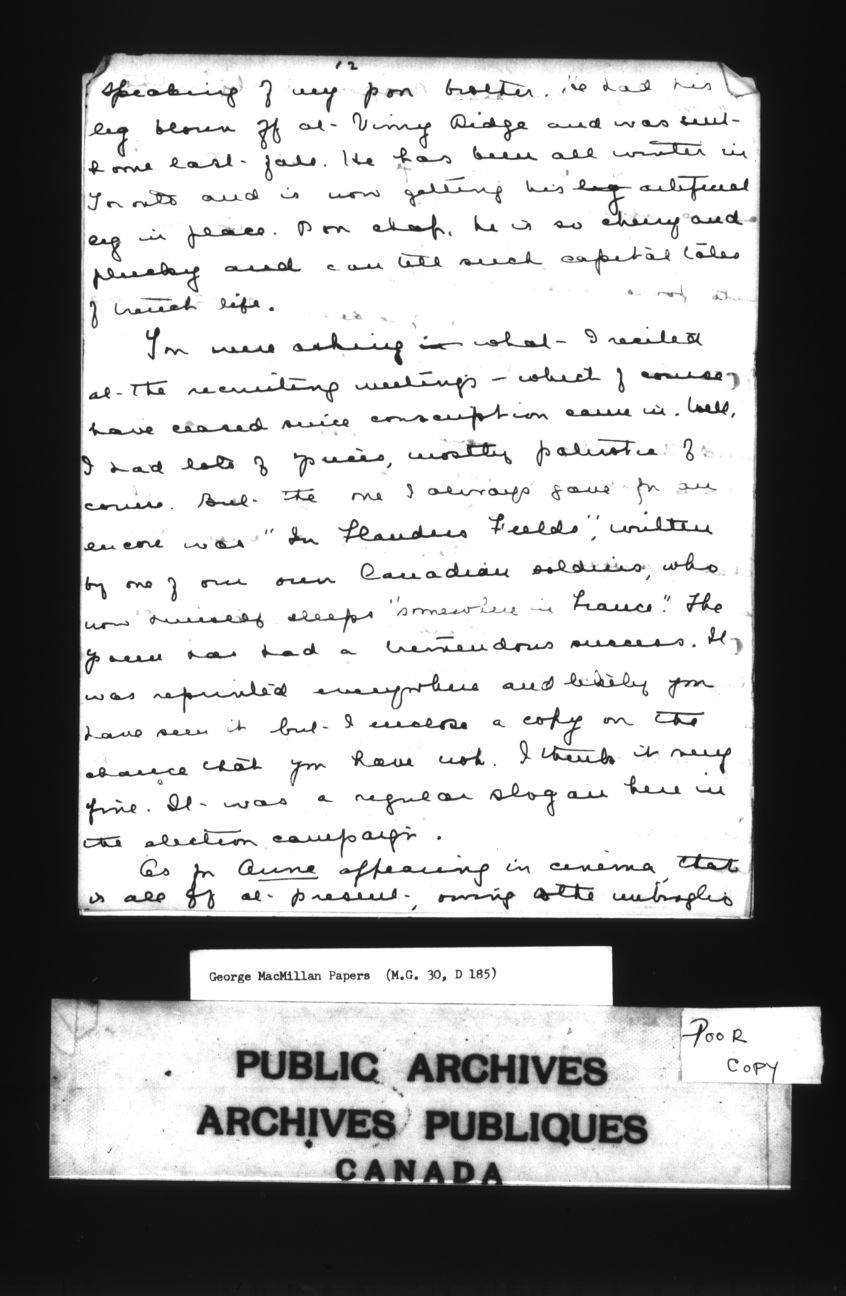 12
speaking of my poor brother. He had his
leg blown off at Vimy Ridge and was sent
home last fall. He has been all winter in
Toronto and is now getting his leg artificial
leg in place. Poor chap, he is so cheery and
plucky and can tell such capital tales
of trench life.
You were asking in what I recited
at the recruiting meetings – which of course,
have ceased since conscription came in. Well,
I had lots of pieces, mostly patriotic of
course. But the one I always gave for an
encore was "In Flanders Fields", written
by one of our own Canadian soldiers, who
now himself sleeps "somewhere in France." The
poem has had a tremendous success. It
was reprinted everywhere and likely you
have seen it but I enclose a copy on the
chance that you have not. I think it very
fine. It was a regular slogan here in
the election campaign.
As for Anne appearing in cinema, that
is all off at present, owing to the imbroglio
George MacMillan Papers (M.G. 30, D 185)
POOR
COPY
PUBLIC ARCHIVES
ARCHIVES PUBLIQUES
CANADA